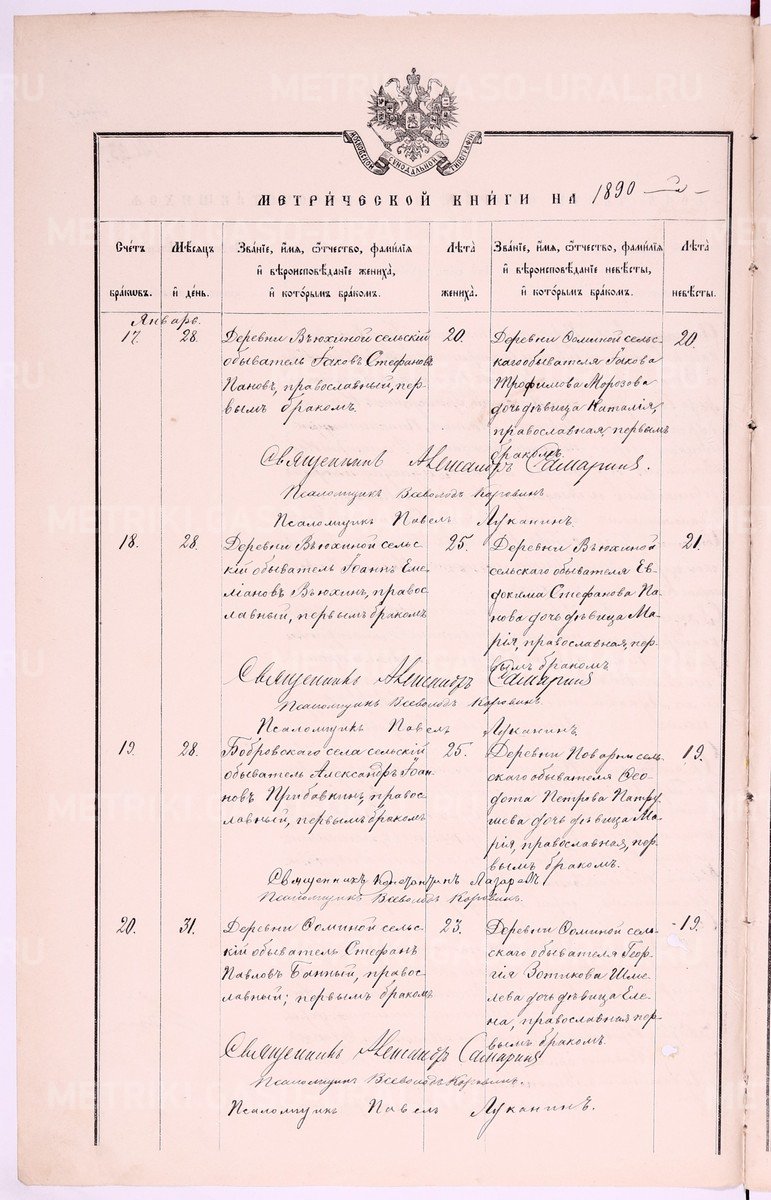 МОСКОВСКОЙ СУНОДАЛЬНОЙ ТИПОГРАФІИ
МЕТРИ́ЧЕСКОЙ КНИ́ГИ НА 1890
Сче́тъ бра́кωвъ.
Мѣ́сяцъ и҆ де́нь.
Зва́нїе, и҆́мя, ѻ҆́тчество, фами́лїя и҆ вѣроисповѣ́данїе жениха̀, и҆ кото́рымъ бра́комъ.
Лѣ́та жениха̀.
Зва́нїе, и҆́мя, ѻ҆́тчество, фами́лїя и҆ вѣроисповѣ́данїе невѣ́сты, и҆ кото́рымъ бра́комъ.
Лѣ́та невѣ́сты.
Январь.
17. 28.
Деревни Вьюхиной сельскій
обыватель Іаковъ Стефановъ
Пановъ, православный, пер-
вымъ бракомъ.
20.
Деревни Ѳоминой сельс-
каго обывателя Іакова
Трофимова Морозова
дочь дѣвица Наталія,
православная, первымъ
бракомъ.
20.
Священникъ Александръ Самаринъ.
Псаломщикъ Всеволодъ Коровинъ
Псаломщикъ Павелъ Луканинъ.
18. 28.
Деревни Вьюхиной сельс-
кій обыватель Іоаннъ Еме-
ліановъ Вьюхинъ, право-
славный, первымъ бракомъ
25.
Деревни Вьюхиной
сельскаго обывателя Ев-
докима Стефанова Па-
нова дочь дѣвица Ма-
рія, православная, пер-
вымъ бракомъ
21.
Священникъ Александръ Самаринъ
Псаломщикъ Всеволодъ Коровинъ.
Псаломщикъ Павелъ Луканинъ.
19. 28.
Бобровскаго села сельскій
обыватель Александръ Іоан-
новъ Прибавкинъ, право-
славный, первымъ бракомъ
25.
Деревни Поварни сель-
скаго обывателя Ѳео-
дота Петрова Патру-
шева дочь дѣвица Ма-
рія, православная, пер-
вымъ бракомъ.
19.
Священникъ Константинъ Лазаревъ
Псаломщикъ Всеволодъ Коровинъ.
20. 31.
Деревни Ѳоминой сельс-
кій обыватель Стефанъ
Павловъ Банный, право-
славный; первымъ бракомъ
23.
Деревни Ѳоминой сель-
скаго обывателя Геор-
гія Зотикова Шме-
лева дочь дѣвица Еле-
на, православная пер-
вымъ бракомъ.
19.
Священникъ Александръ Самаринъ
Псаломщикъ Всеволодъ Коровинъ.
Псаломщикъ Павелъ Луканинъ.